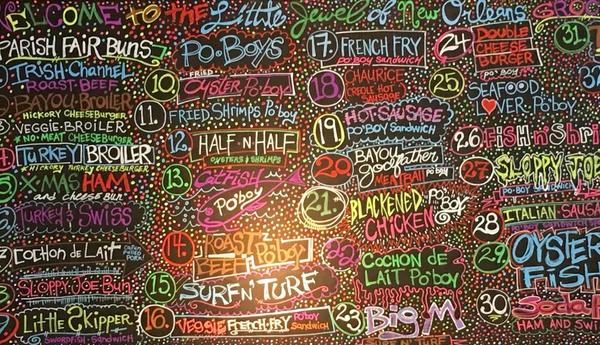 ELCOME TO the Little Jewel of New Orleans
PARISH FAIR BUNS
IRISH-CHANNEL
ROAST-BEEF
BAYOU BROILER
HICKORY CHEESEBURGER
VEGGIE-BROILER
NO-MEAT CHEESEBURGER
TURKEY BROILER
HICKORY TURKEY CHEESEBURGER
5 X-MAS HAM
and cheese Bun
TURKEY & SWISS
COCHON de LAIT
SLOPPY JOE BUN
LITTLE SKIPPER
SWORDFISH-SANDWICH
PO-BOYS
10. FRIED
OYSTER PO'BOY
11. FRIED SHRIMPS PO'BOY
12. HALF-N-HALF
OYSTERS & SHRIMPS
13. CATFISH
PO'BOY
14. ROAST
BEEF PO'BOY
15 SURF N' TURF
16. VEGGIE FRENCH-FRY PO'BOY
SANDWICH
17. FRENCH FRY
PO'BOY SANDWICH
18 CHAURICE
CREOLE HOT
SAUSAGE
19 HOT-SAUSAGE
PO'BOY SANDWICH
20 BAYOU
godfather
MEATBALL PO'BOY
21. BLACKENED
CHICKEN PO'BOY
22 COCHON de
LAIT PO'BOY
23 Big M
24 DOUBLE
CHEESE
BURGER
PO'BOY
25 SEAFOOD
VER-PO'BOY
26. FISH-n-SHRI
27. SLOPPY JOE
PO-BOY SANDWICH
28 ITALIAN-SAUSA
29. OYSTER
FISH
30 Soda
HAM AND SWI
31.